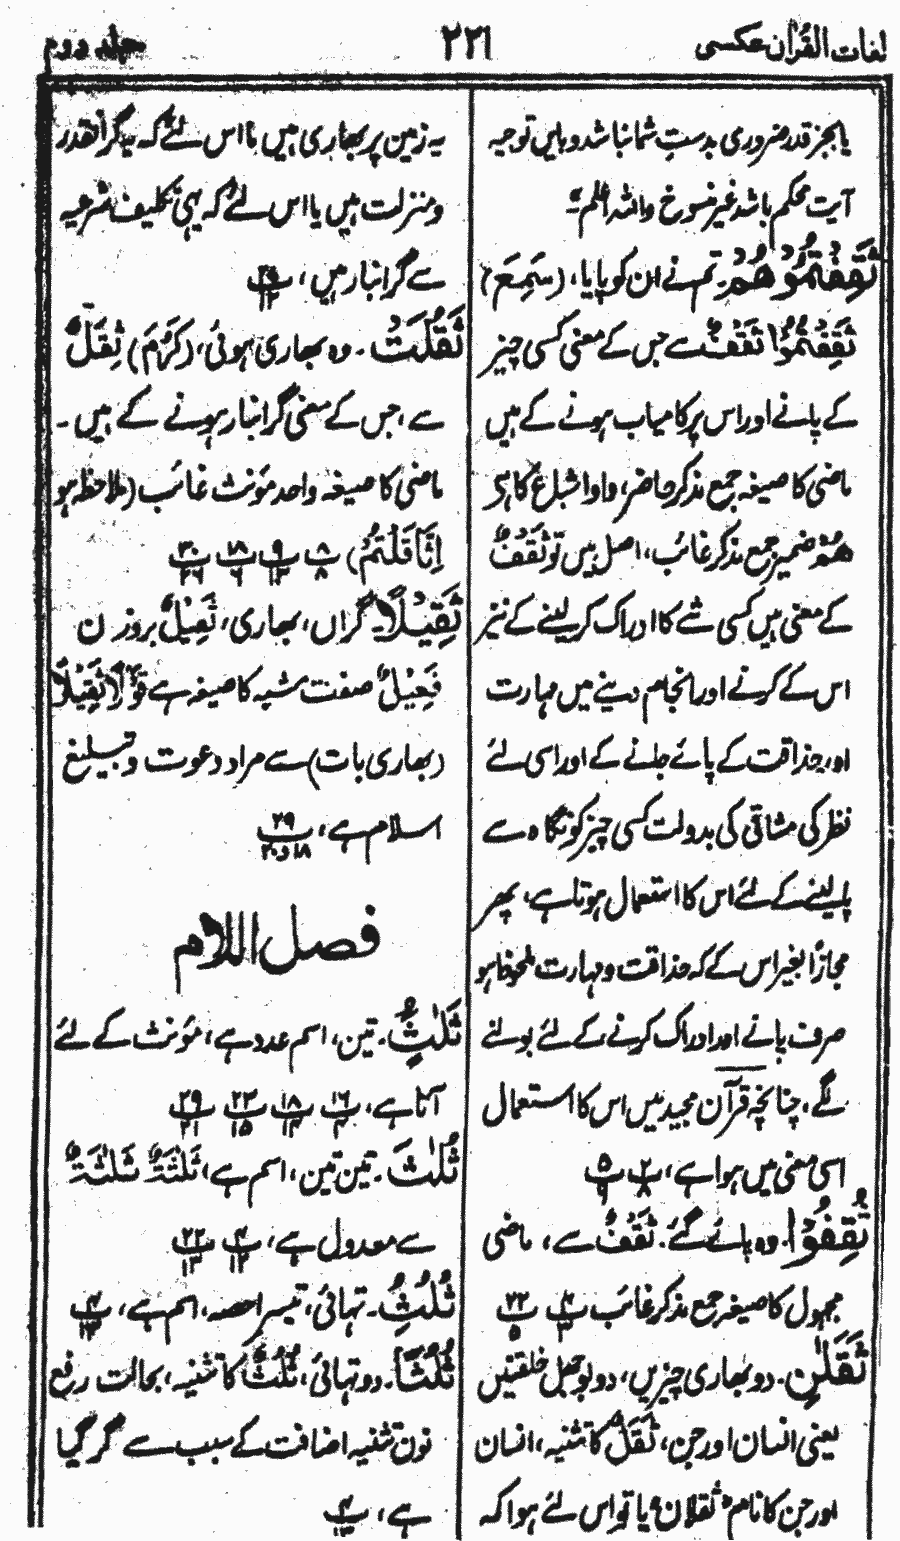 لغات القرآن عکسی
۲۲۱
جلد دوم
یا بجز قدر ضروری بدست شما نباشد و بایں توجیہ
آیت محکم باشد غیر منسوخ واللہ اعلم
ثَقِفْتُمُوْهُمْ۔ تم نے ان کو پایا، (سَمِعَ)
ثَقِفْتُمُوْا ثَقْفٌ سے جس کے معنی کسی چیز
کے پانے اور اس پر کامیاب ہونے کے ہیں
ماضی کا صیغہ جمع مذکر حاضر، واو اشباع کا ہے
هُمْ ضمیر جمع مذکر غائب، اصل میں تو ثَقْفٌ
کے معنی ہیں کسی شے کا ادراک کر لینے کے نیز
اس کے کرنے اور انجام دینے میں مہارت
اور حذاقت کے پائے جانے کے اور اسی لئے
نظر کی مشاقی کی بدولت کسی چیز کو نگاہ سے
پا لینے کے لئے اس کا استعمال ہوتا ہے، پھر
مجازًا بغیر اس کے کہ حذاقت و مہارت ملحوظ ہو
صرف پانے اور ادراک کرنے کے لئے بولنے
لگے، چنانچہ قرآن مجید میں اس کا استعمال
اسی معنی میں ہوا ہے، ۲/۸ ۵/۹
ثُقِفُوْا۔ وہ پائے گئے۔ ثَقْفٌ سے، ماضی
مجہول کا صیغہ جمع مذکر غائب ۴/۳ ۲۲/۵
ثَقَلٰنِ۔ دو بھاری چیزیں، دو بوجھل خلقتیں
یعنی انسان اور جن، ثَقَلٌ کا تثنیہ، انسان
اور جن کا نام ثقلان یا تو اس لئے ہوا کہ
یہ زمین پر بھاری ہیں یا اس لئے کہ یہ گرانقدر
و منزلت ہیں یا اس لئے کہ یہی تکلیف شرعیہ
سے گرانبار ہیں، ۲۷/۱۲
ثَقُلَتْ۔ وہ بھاری ہوئی، (کَرُمَ) ثِقَلٌ
سے، جس کے معنی گرانبار ہونے کے ہیں۔
ماضی کا صیغہ واحد مؤنث غائب (ملاحظہ ہو
اِثَّاقَلْتُمْ) ۸/۸ ۹/۱۳ ۱۸/۶ ۳۰/۲۶
ثَقِیْلًا۔ گراں، بھاری، ثَقِیْلٌ بروزن
فَعِیْلٌ صفت مشبہ کا صیغہ ہے قَوْلًا ثَقِیْلًا
(بھاری بات) سے مراد دعوت و تبلیغ
اسلام ہے، ۲۹/۱۸و۲۰
فصل اللام
ثَلٰثٍ۔ تین، اسم عدد ہے، مؤنث کے لئے
آتا ہے، ۱۶/۳ ۱۸/۱۲ ۲۳/۱۵ ۲۹/۲۱
ثُلٰثَ۔ تین تین، اسم ہے، ثَلٰثَةٌ ثَلٰثَةٌ
سے معدول ہے، ۴/۱۲ ۲۲/۱۳
ثُلُثُ۔ تہائی، تیسرا حصہ، اسم ہے، ۴/۱۳
ثُلُثَا۔ دو تہائی، ثُلُثٌ کا تثنیہ، بحالت رفع
نون تثنیہ اضافت کے سبب سے گر گیا
ہے، ۴/۱۳